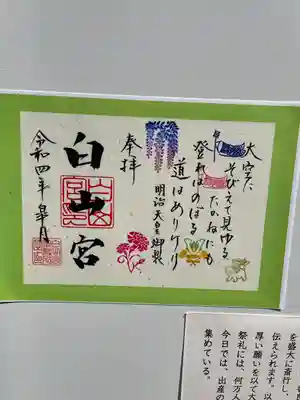 大空に
そびえて見ゆる
たかねにも
登ればのぼる
道はありけり
明治天皇御製
奉拝
白山宮
令和四年 皐月
を盛大に斎行し、
伝えられます。以
厚い願いを以て大
祭礼には、何万人
今日では、出産の
集めている。